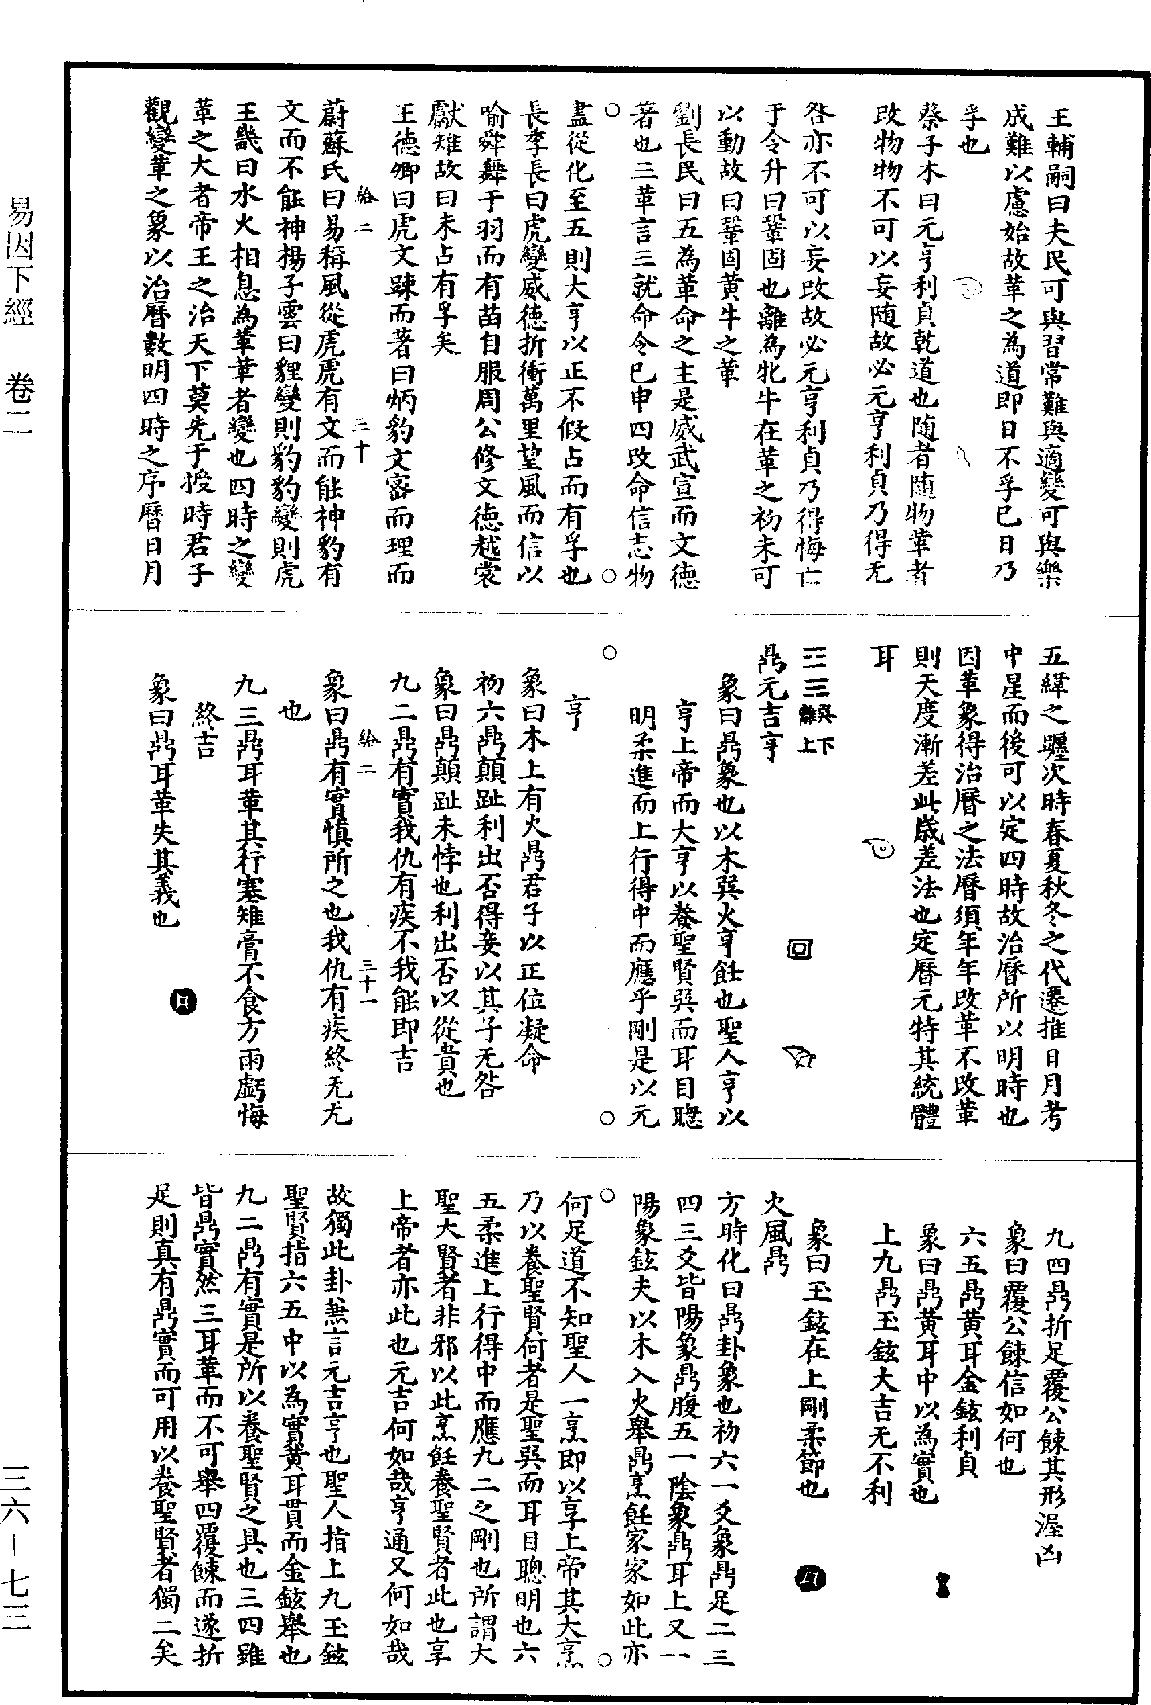 王輔嗣曰夫民可與習常難與適變可與樂
成難以慮始故革之為道即日不孚巳日乃
孚也
蔡子木曰元亨利貞乾道也随者随物革者
改物物不可以妄随故必元亨利貞乃得无
咎亦不可以妄改故必元亨利貞乃得悔亡
于令升曰鞏固也離為牝牛在革之初未可
以動故曰鞏固黃牛之革
劉長民曰五為革命之主是威武宣而文德
著也三革言三就命令巳申四改命信志物
盡從化至五則大亨以正不假占而有孚也
長李長曰虎變威德折衝萬里望風而信以
喻舜舞干羽而有苗自服周公修文德越裳
獻雉故曰未占有孚矣
王德卿曰虎文踈而著曰炳豹文宻而理而
給二
三十
蔚蘇氏曰易稱風從虎虎有文而能神豹有
文而不能神揚子雲曰貍變則豹豹變則虎
王畿曰水火相息為革革者變也四時之變
革之大者帝王之治天下莫先于授時君子
觀變革之象以治曆數明四時之序曆日月
五緯之躔次時春夏秋冬之代遷推日月考
中星而後可以定四時故治曆所以明時也
因革象得治曆之法曆須年年改革不改革
則天度漸差此歲差法也定曆元特其統體
耳
☲☴巽下離上
鼎元吉亨
彖曰鼎象也以木巽火亨飪也聖人亨以
亨上帝而大亨以養聖賢巽而耳目聰
明柔進而上行得中而應乎剛是以元
亨
象曰木上有火鼎君子以正位凝命
初六鼎顛趾利出否得妾以其子无咎
象曰鼎顛趾未悖也利出否以從貴也
九二鼎有實我仇有疾不我能即吉
給二
三十一
象曰鼎有實慎所之也我仇有疾終无尤
也
九三鼎耳革其行塞雉膏不食方雨虧悔
終吉
象曰鼎耳革失其義也
九四鼎折足覆公餗其形渥凶
象曰覆公餗信如何也
六五鼎黃耳金鉉利貞
象曰鼎黃耳中以為實也
上九鼎玉鉉大吉无不利
象曰玉鉉在上剛柔節也
火風鼎
方時化曰鼎卦象也初六一爻象鼎足二三
四三爻皆陽象鼎腹五一陰象鼎耳上又一
陽象鉉夫以木入火舉鼎烹飪家家如此亦
何足道不知聖人一烹即以享上帝其大烹
乃以養聖賢何者是聖巽而耳目聰明也六
五柔進上行得中而應九二之剛也所謂大
聖大賢者非邪以此烹飪養聖賢者此也享
上帝者亦此也元吉何如哉亨通又何如哉
故獨此卦無言元吉亨也聖人指上九玉鉉
聖賢指六五中以為實黃耳貫而金鉉舉也
九二鼎有實是所以養聖賢之具也三四雖
皆鼎實然三耳革而不可舉四覆餗而遂折
足則真有鼎實而可用以養聖賢者獨二矣
易因下經　卷二
三六－七三